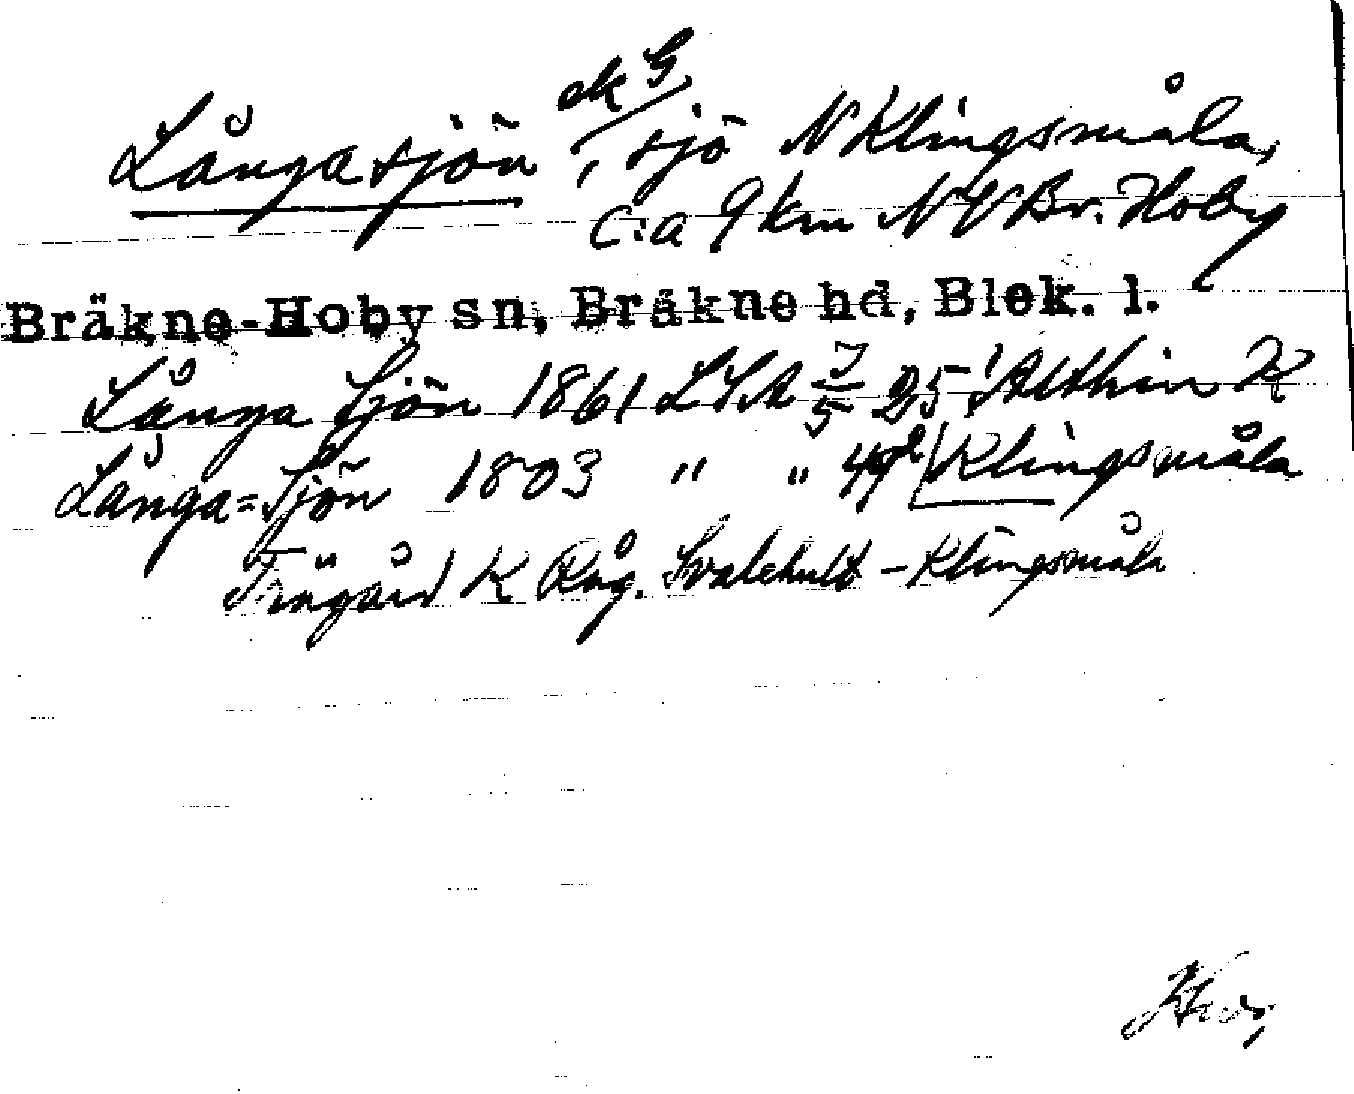 ek G
Långasjön, sjö N Klingsmåla,
c:a 9 km NV Br. Hoby
Bräkne-Hoby sn, Bräkne hd, Blek. l.
Långa Sjön 1861 LSA 7/5 25 Althin K
Långa=Sjön 1803 " " 49 Klingsmåla
K Råg. Svalehult - Klingsmåla